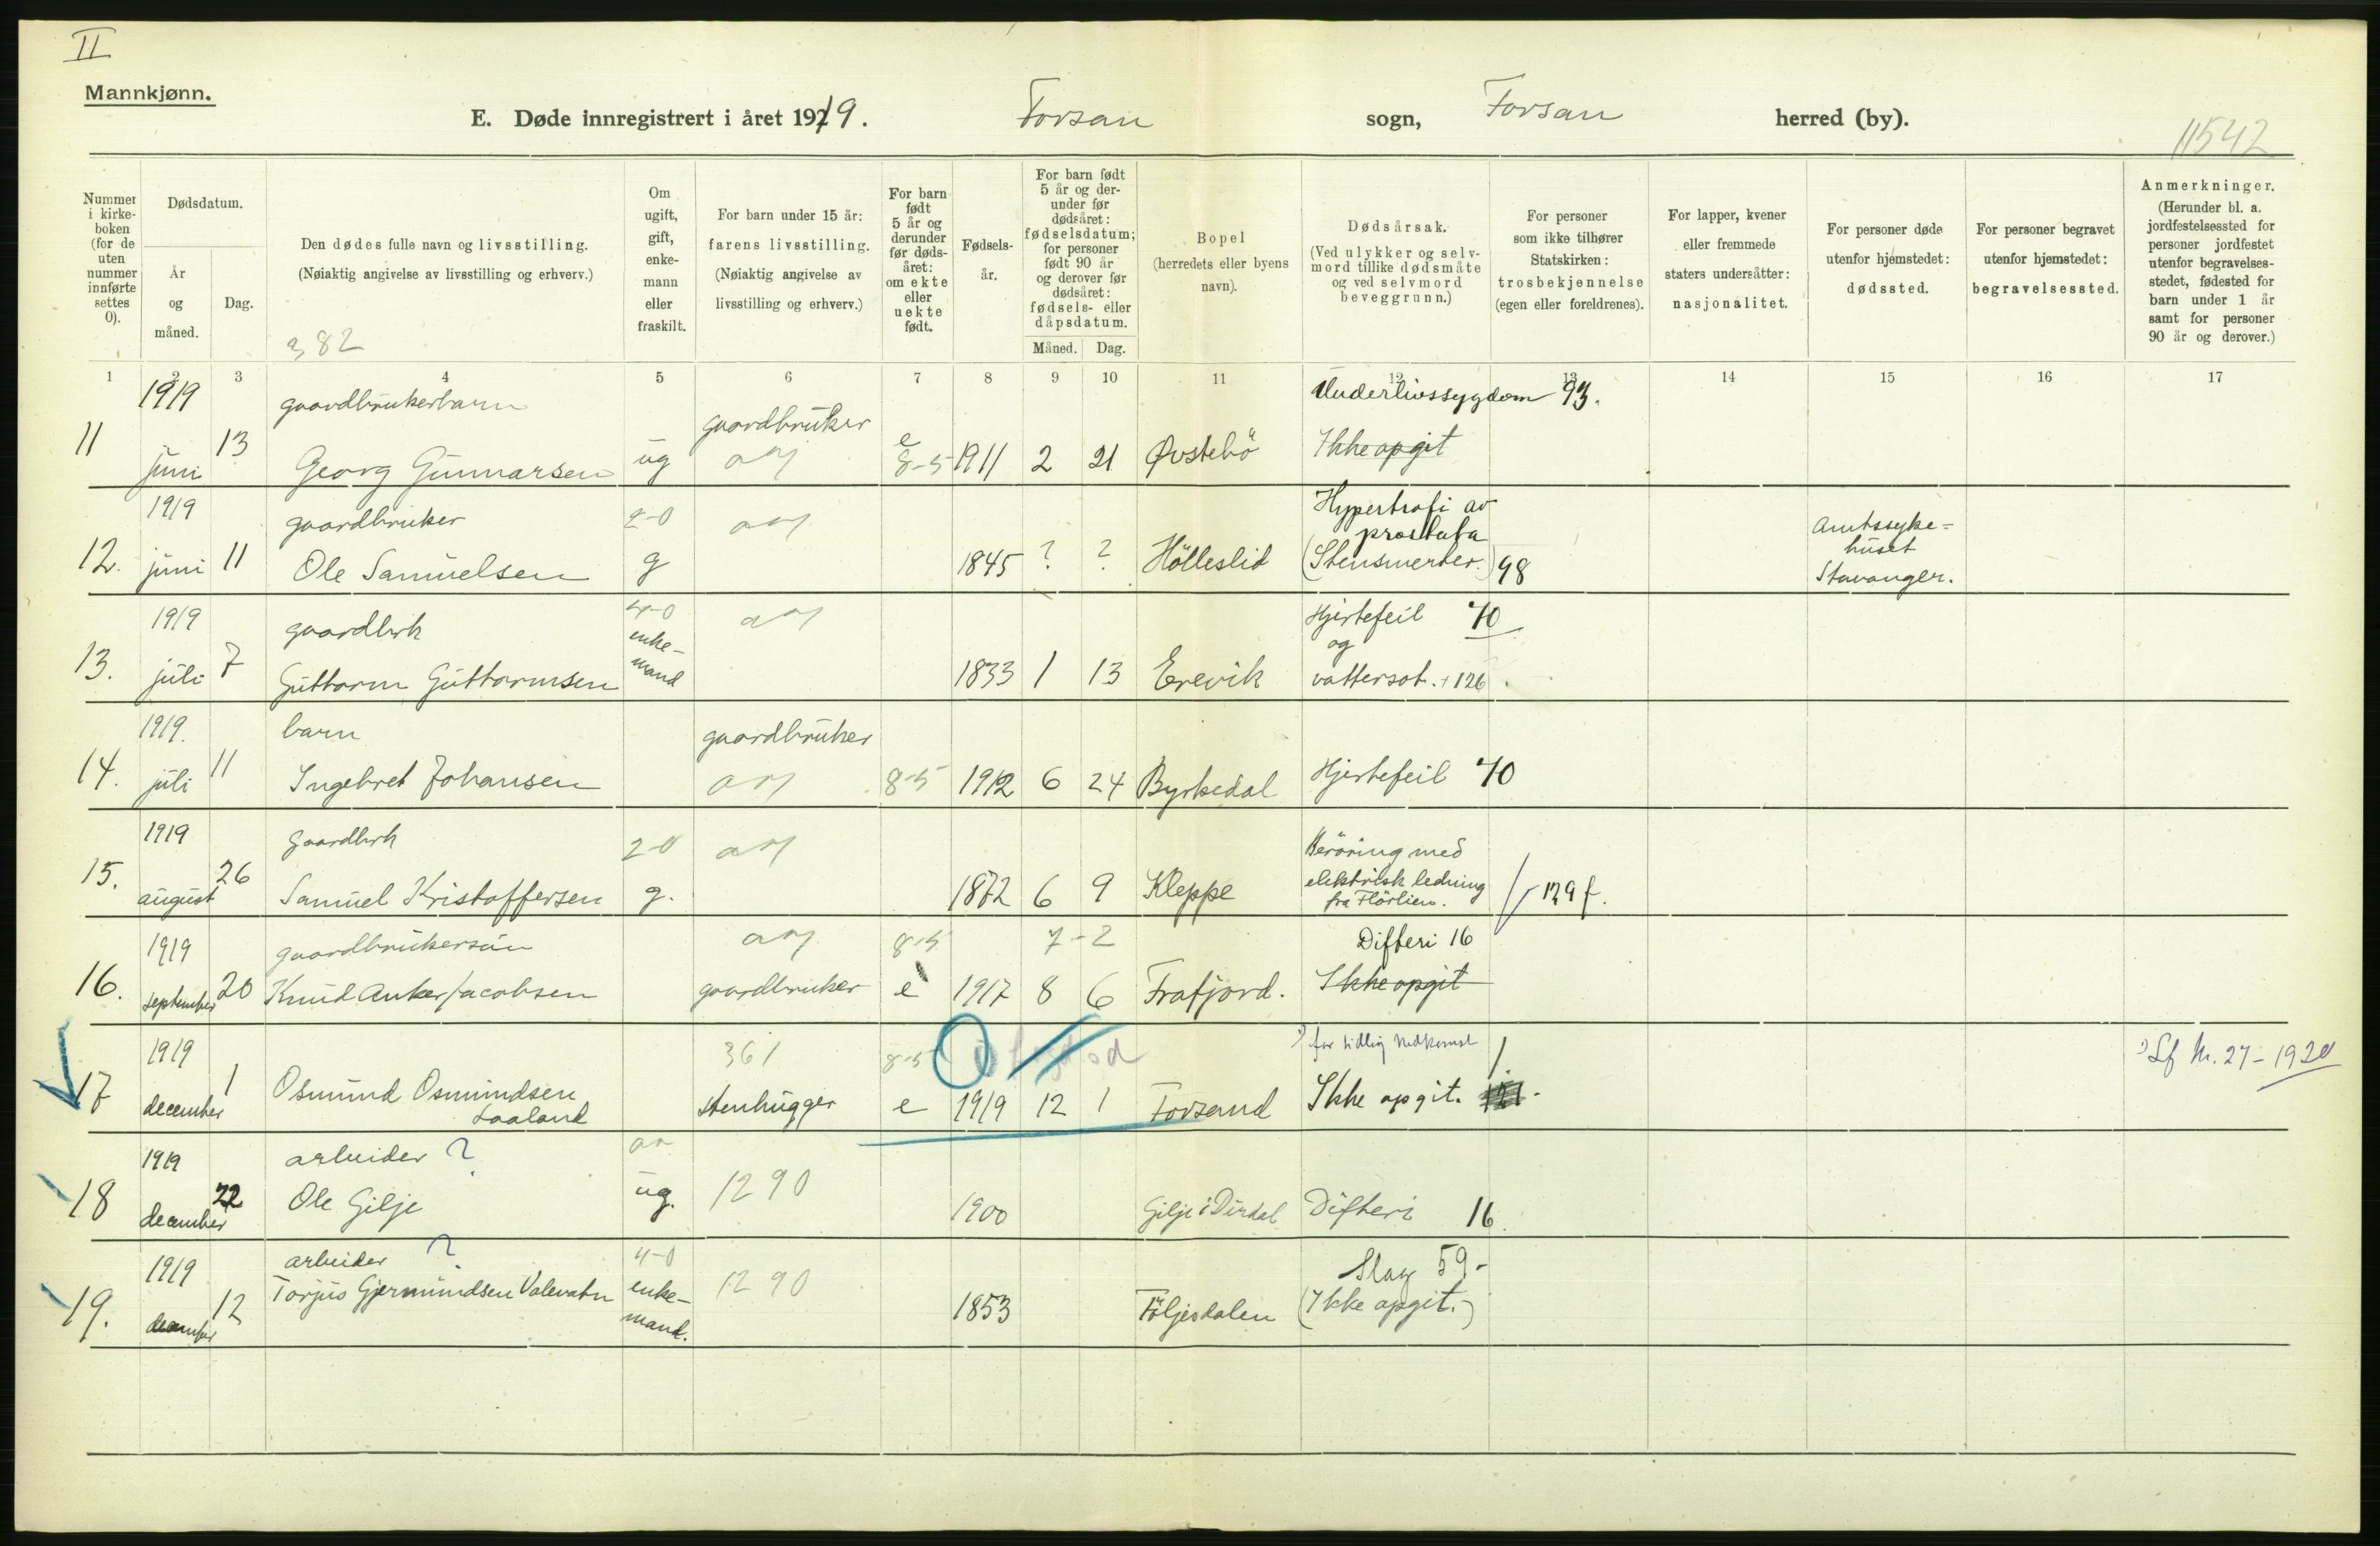 II
Mannkjønn.
E. Døde innregistrert i året 1919.
Forsan
sogn,
Forsan
herred (by).
11542
Nummer i kirkeboken (for de uten nummer innførte settes 0).
Dødsdatum.
År og måned.
Dag.
Den dødes fulle navn og livsstilling.
(Nøiaktig angivelse av livsstilling og erhverv.)
382
Om ugift, gift, enkemann eller fraskilt.
For barn under 15 år: farens livsstilling.
(Nøiaktig angivelse av livsstilling og erhverv.)
For barn født 5 år og derunder før dødsåret: om ekte eller uekte født.
Fødselsår.
For barn født 5 år og derunder før dødsåret: fødselsdatum; for personer født 90 år og derover før dødsåret: fødsels- eller dåpsdatum.
Måned. Dag.
Bopel
(herredets eller byens navn).
Dødsårsak.
(Ved ulykker og selvmord tillike dødsmåte og ved selvmord beveggrunn.)
For personer som ikke tilhører Statskirken: trosbekjennelse (egen eller foreldrenes).
For lapper, kvener eller fremmede staters undersåtter: nasjonalitet.
For personer døde utenfor hjemstedet: dødssted.
For personer begravet utenfor hjemstedet: begravelsessted.
Anmerkninger.
(Herunder bl. a. jordfestelsessted for personer jordfestet utenfor begravelsesstedet, fødested for barn under 1 år samt for personer 90 år og derover.)
1 2 3 4 5 6 7 8 9 10 11 12 13 14 15 16 17
1919 gaardbrukerbarn gaardbruker Underlivssygdom 93.
11 juni 13 Georg Gunnarsen ug e 8-5 1911 2 21 Øvstebö Ikke opgit
1919 gaardbruker 2-0 Hypertrofi av prostata
12. juni 11 Ole Samuelsen g 1845 ? ? Hölleslid (Stensmerter.) 98 Amtssyke-
huset
Stavanger.
1919 gaardbrk 4-0 Hjertefeil 70
og
13. juli 7 Guttorm Guttormsen enke-
mand 1833 1 13 Erevik vattersot. + 126
1919. barn gaardbruker
14. juli 11 Ingebret Johansen 8-5 1912 6 24 Byrkedal Hjertefeil 70
1919 gaardbrk 2-0 Beröring med
15. august 26 Samuel Kristoffersen g. 1872 6 9 Kleppe elektrisk ledning
fra Flörlien. 139 f.
1919 gaardbrukersön 8-5 7-2 Difteri 16
16. september 20 Knud Anker Jacobsen gaardbruker e 1917 8 6 Frafjord. Ikke opgit
1919 361 8-5 for tidlig nedkomst 1 Lf Nr. 27 - 1920
17 december 1 Osmund Osmundsen
Laaland stenhugger e 1919 12 1 Forsand Ikke opgit.
1919 arbeider ?
18 december 22 Ole Gilje ug. 1290 1900 Gilje i Dirdal Difteri 16
1919 arbeider ? 4-0 Slag 59-
19. december 12 Torjus Gjermundsen Valevatn enke-
mand. 1290 1853 Följesdalen (Ikke opgit.)